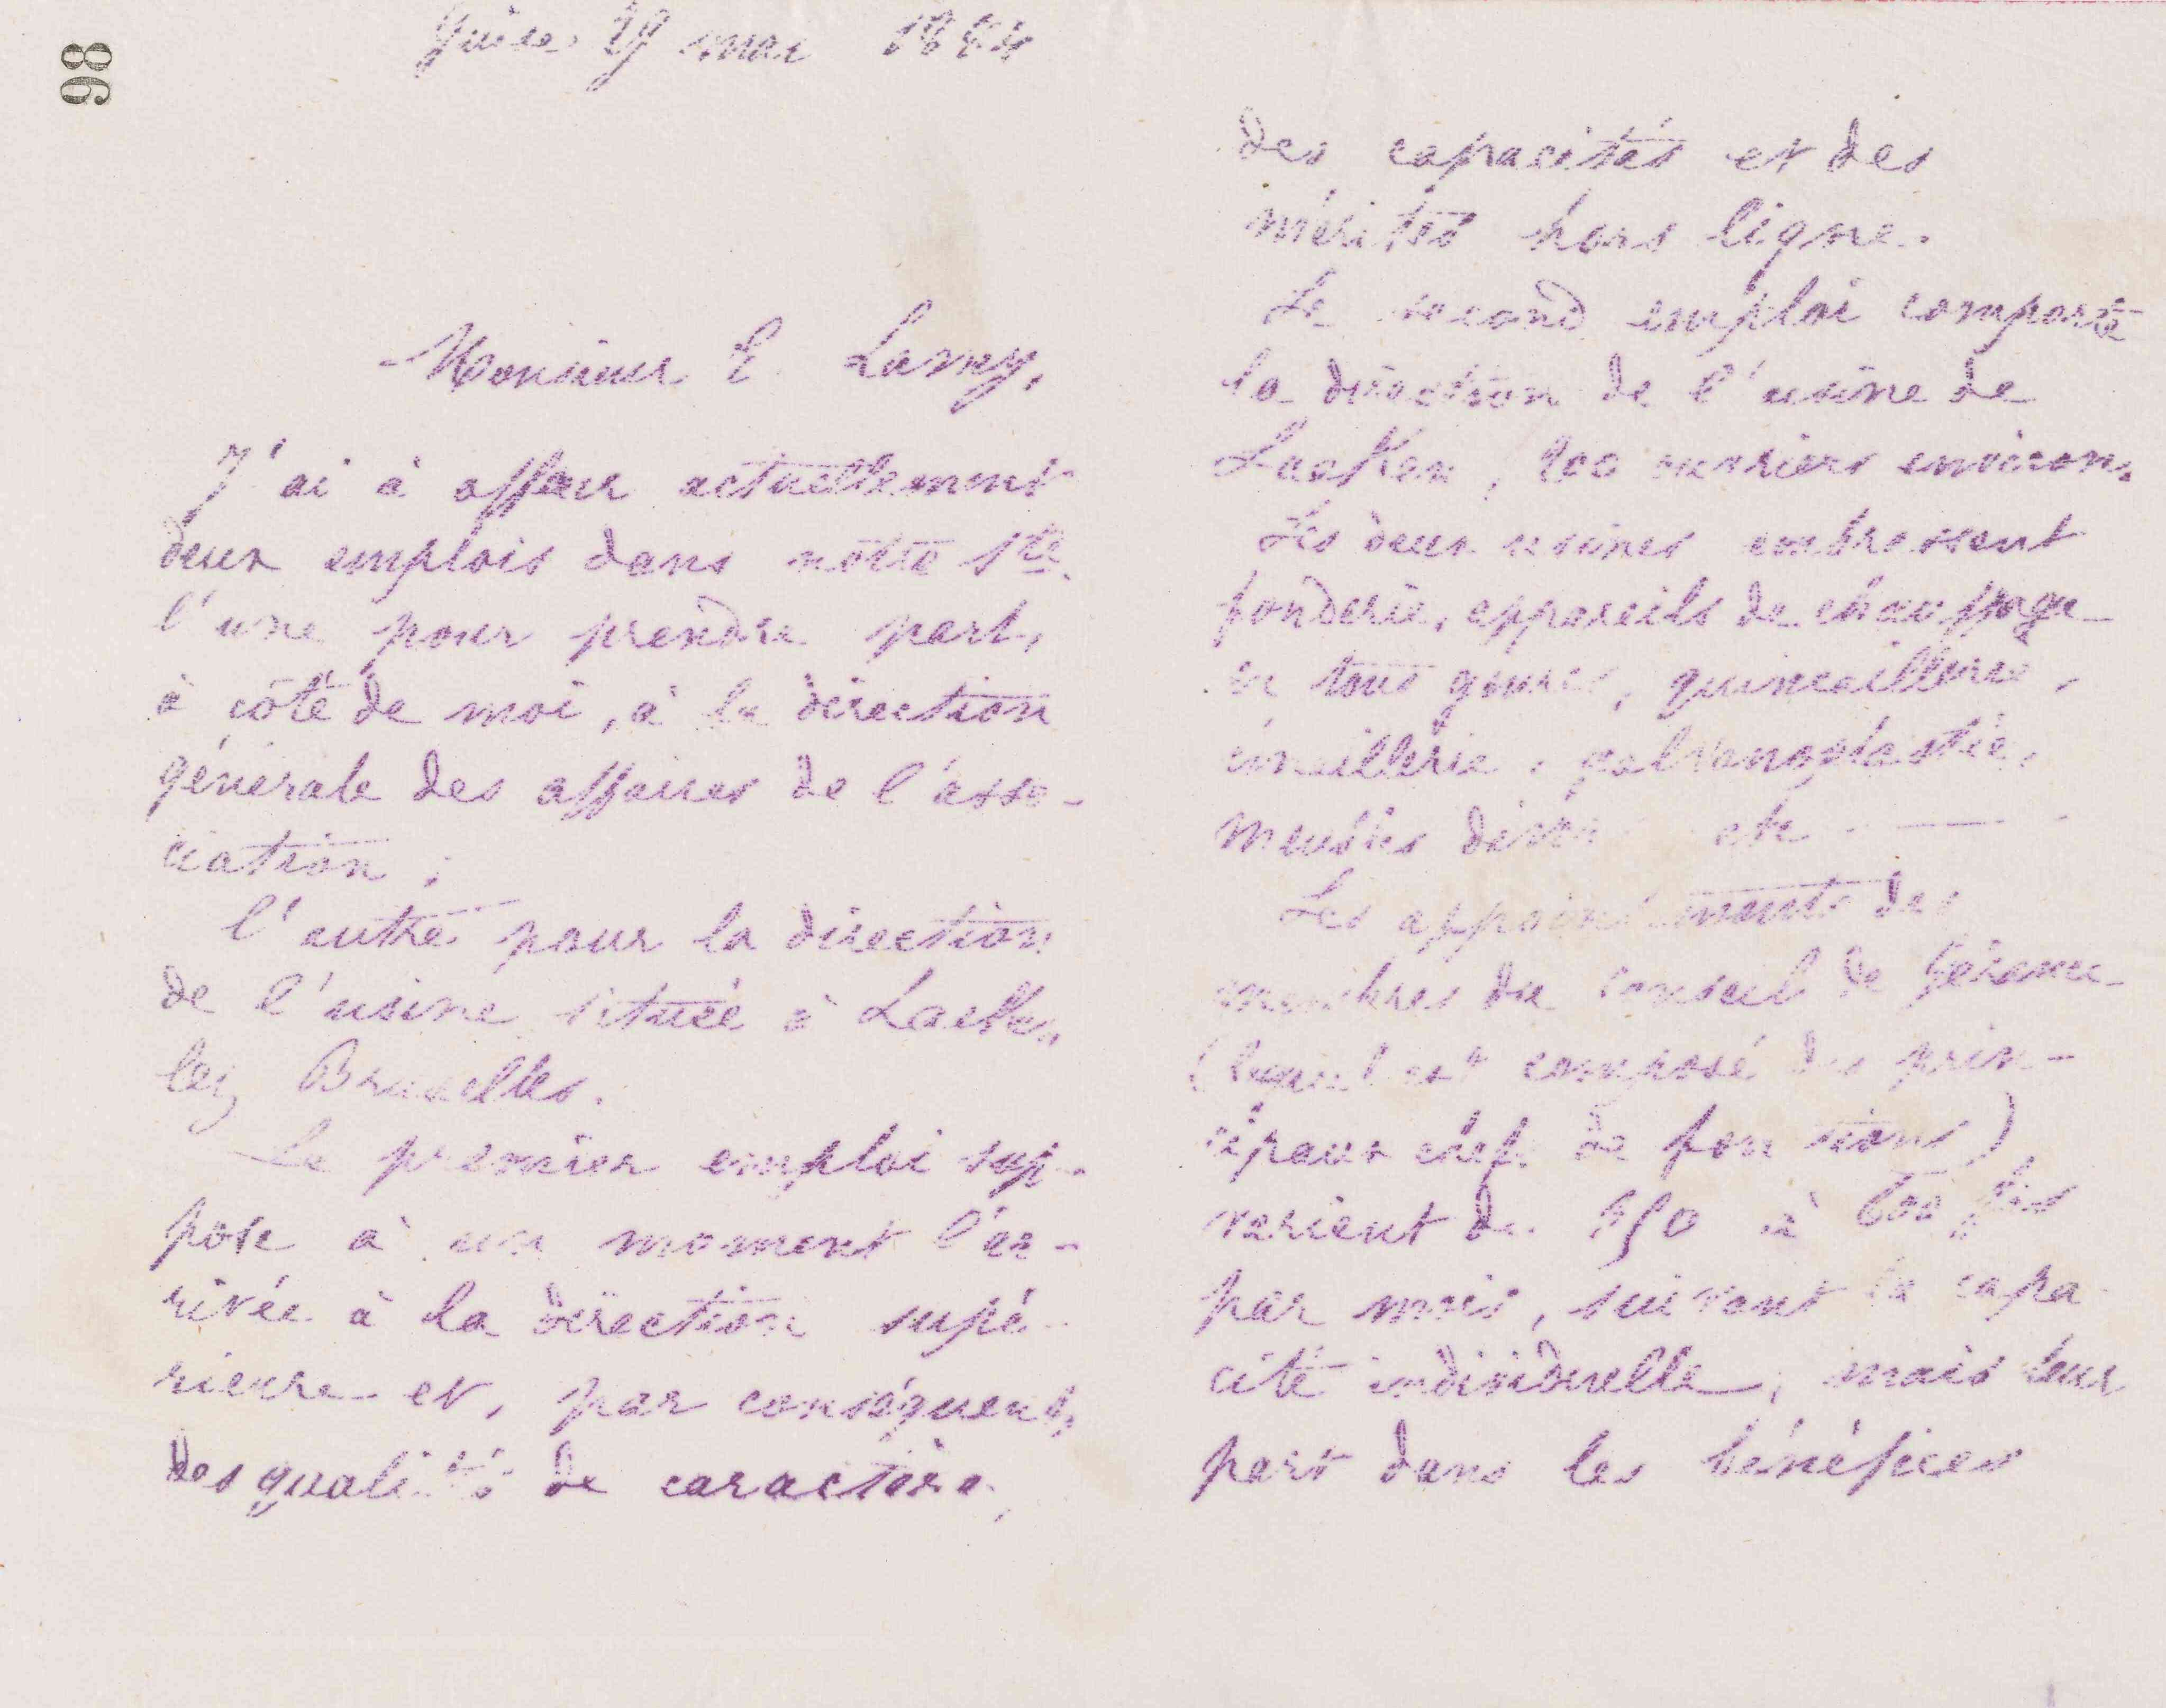 98
Guise 29 mai 1884
Monsieur E. Lamy,
J'ai à offrir actuellement
deux emplois dans notre Sté
l'une pour prendre part,
à côté de moi, à la direction
générale des affaires de l'asso-
ciation;
l'autre pour la direction
de l'usine située à Laeken
lez Bruxelles.
Le premier emploi sup-
pose à un moment l'ar-
rivée à la direction supé-
rieure et, par conséquent,
des qualités de caractère,
des capacités et des
mérites hors ligne.
Le second emploi comporte
la direction de l'usine de
Laeken, 200 ouvriers environ.
Les deux usines embrassent
fonderie, appareils de chauffage
en tous genres, quincaillerie,
émaillerie, galvanoplastie,
meubles divers etc
Les appointements des
membres du conseil de Gérance
(lequel est composé des prin-
cipaux chefs de fonctions)
varient de à 600 frs
par mois, suivant la capa-
cité individuelle, mais leur
part dans les bénéfices